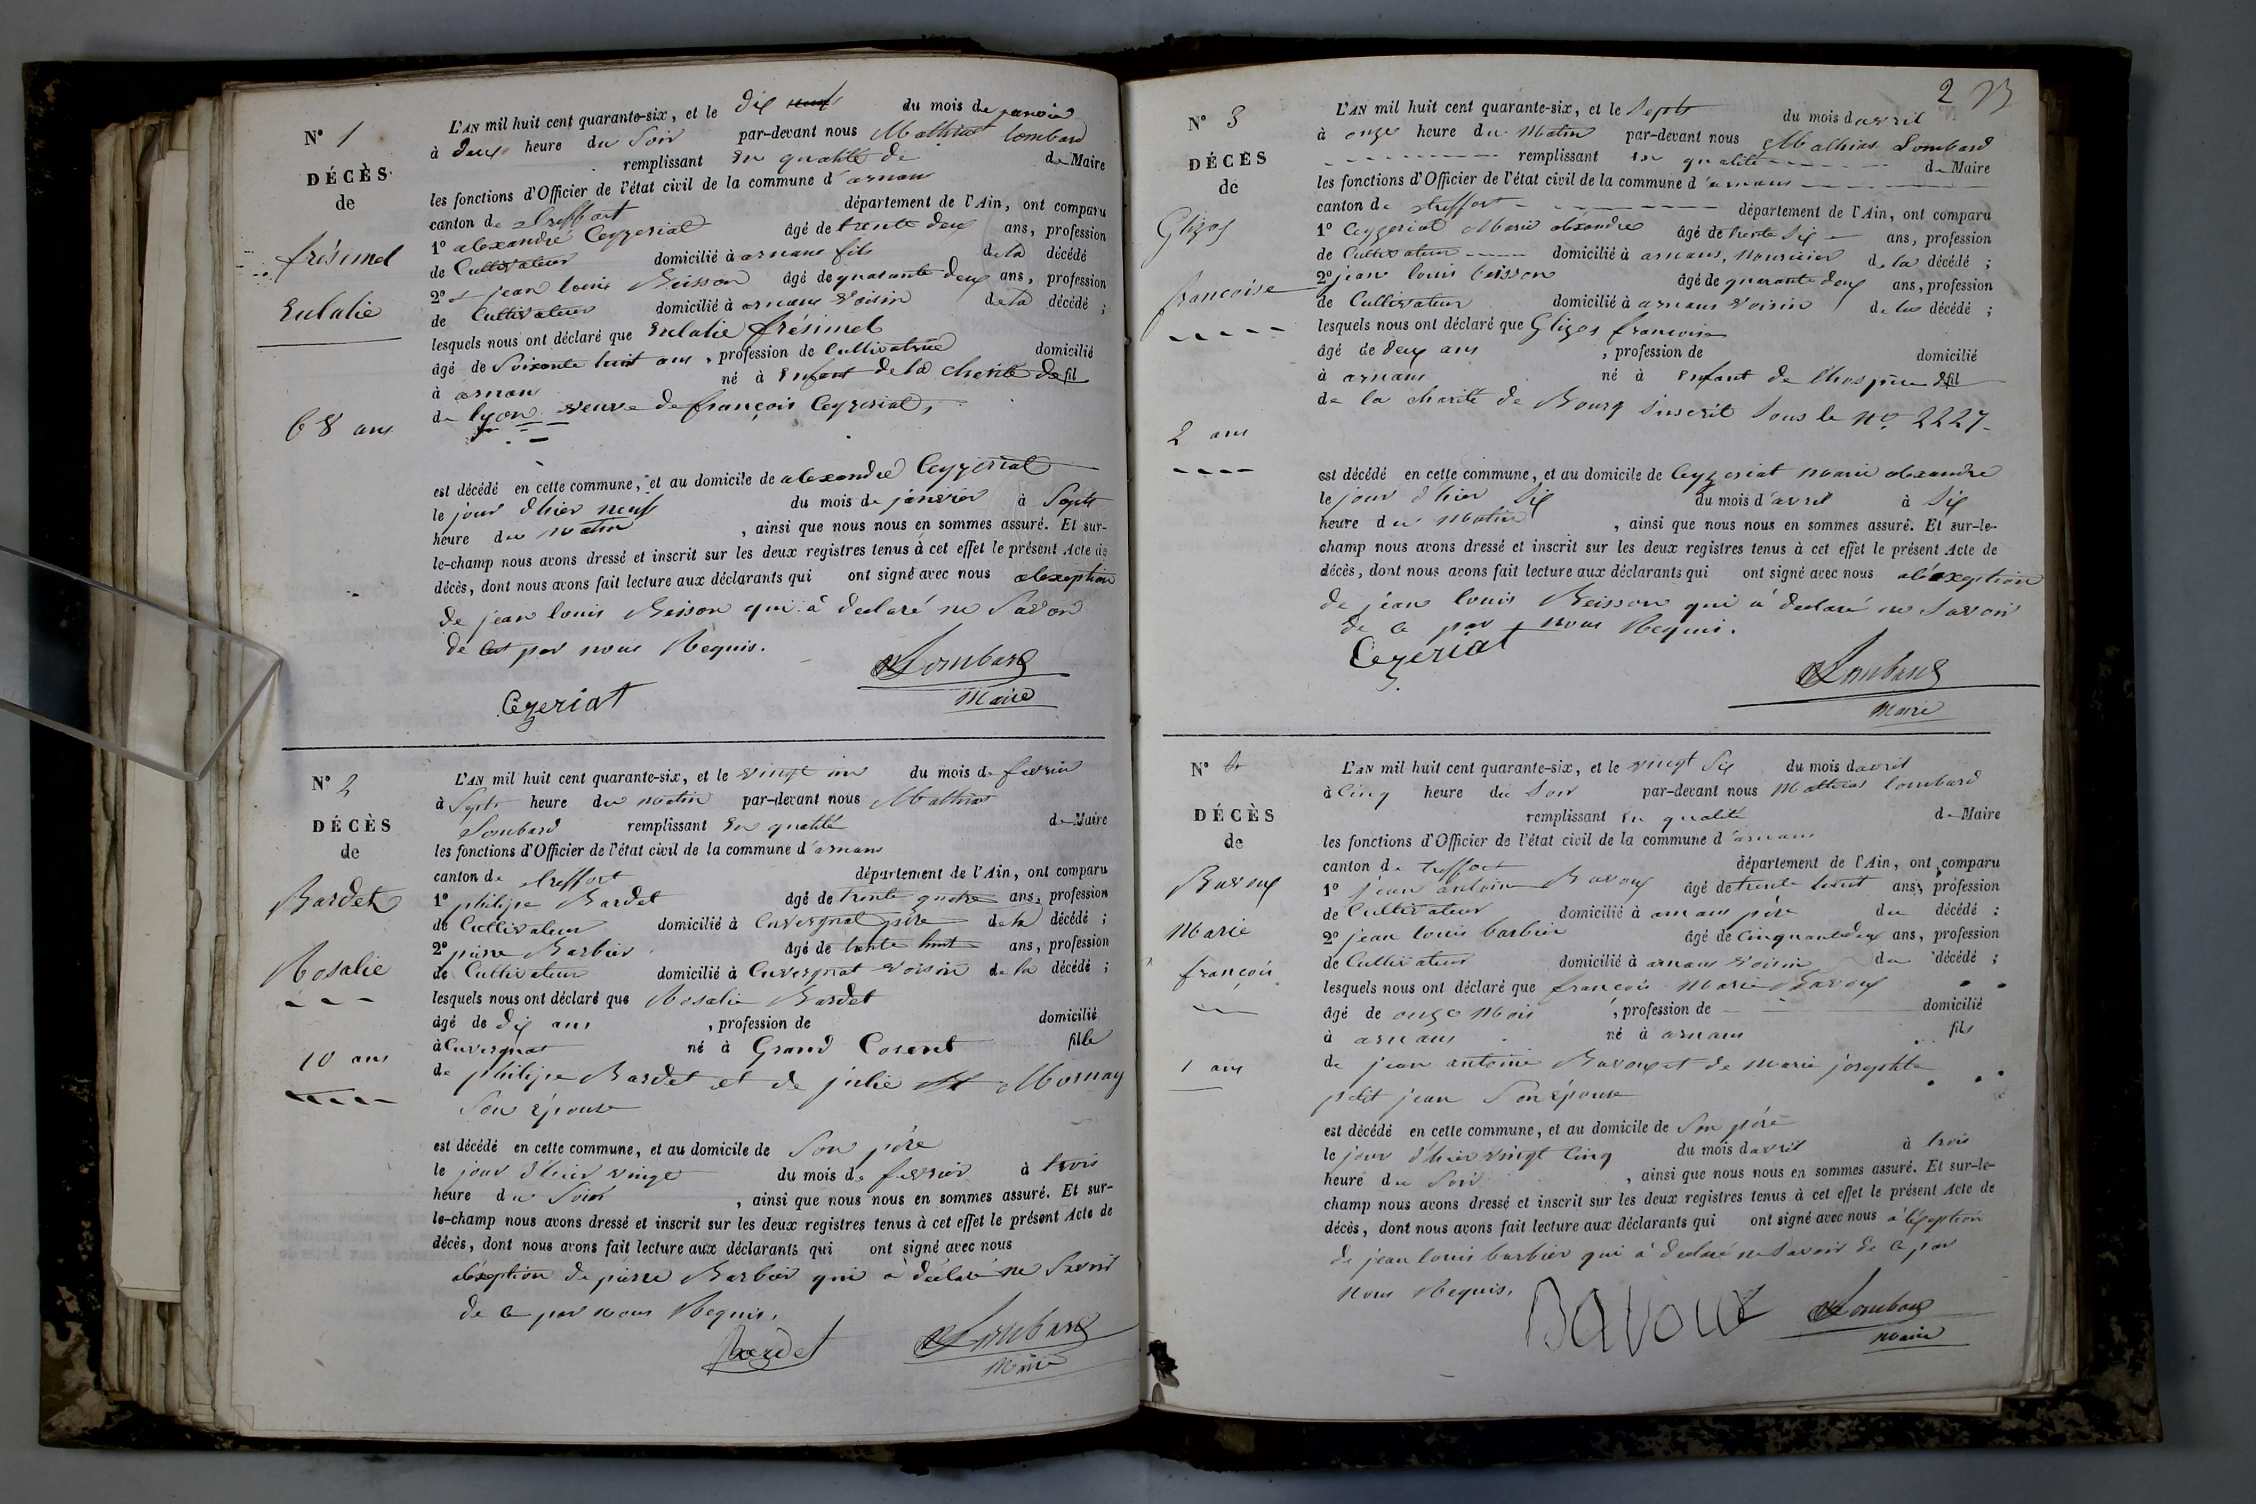 N° 1
DÉCÈS
de
frésimel
Eulalie
68 ans
L'AN mil huit cent quarante-six, et le dix du mois de janvier
à deux heure du Soir par-devant nous Mathias Lombard
remplissant en qualité de de Maire
les fonctions d'Officier de l'état civil de la commune d'arnans
canton de treffort département de l'Ain, ont comparu
1° alexandre Ceyzeriat âgé de trente deux ans, profession
de Cultivateur domicilié à arnans fils de la décédé
2° jean louis Beisson âgé de quarante deux ans, profession
de Cultivateur domicilié à arnans Voisin de la décédé ;
lesquels nous ont déclaré que Eulalie frésimel
âgé de Soixante huit ans, profession de Cultivatrice domicilié
à arnans né à Enfant de la charité de fil
de lyon veuve de françois Ceyzeriat,
est décédé en cette commune, et au domicile de alexandre Ceyzeriat
le jour d'hier neuf du mois de janvier à Sept
heure du matin, ainsi que nous nous en sommes assuré. Et sur-
le-champ nous avons dressé et inscrit sur les deux registres tenus à cet effet le présent Acte de
décès, dont nous avons fait lecture aux déclarants qui ont signé avec nous alexeption
de jean louis Beisson qui à declaré ne Savoir
de ce par nous Requis.
Cezeriat Lombard
Maire
N° 2
DÉCÈS
de
Bardet
Rosalie
10 ans
L'AN mil huit cent quarante-six, et le vingt un du mois de fevrier
à Sept heure du matin par-devant nous Mathias
Lombard remplissant en qualité de Maire
les fonctions d'Officier de l'état civil de la commune d'arnans
canton de treffort département de l'Ain, ont comparu
1° philipe Bardet âgé de trente quatre ans, profession
de Cultivateur domicilié à Cuvergnat père de la décédé ;
2° pierre Barbier âgé de trente huit ans, profession
de Cultivateur domicilié à Cuvergnat Voisin de la décédé ;
lesquels nous ont déclaré que Rosalie Bardet
âgé de dix ans, profession de domicilié
à Cuvergnat né à Grand Corent fille
de philipe Bardet et de julie Mornay
Son épouse
est décédé en cette commune, et au domicile de Son père
le jour d'hier vingt du mois de fevrier à trois
heure du Soir, ainsi que nous nous en sommes assuré. Et sur-
le-champ nous avons dressé et inscrit sur les deux registres tenus à cet effet le présent Acte de
décès, dont nous avons fait lecture aux déclarants qui ont signé avec nous
aléxeption de pierre Barbier qui à déclaré ne Savoir
de ce par nous Requis.
Bardet Lombard
Maire
2
N° 3
DÉCÈS
de
Glizos
francoise
2 ans
L'AN mil huit cent quarante-six, et le Sept du mois d'avril
à onze heure du Matin par-devant nous Mathias Lombard
remplissant en qualité de Maire
les fonctions d'Officier de l'état civil de la commune d'arnans
canton de treffort département de l'Ain, ont comparu
1° Ceyzeriat Marie alexandre âgé de trente Six ans, profession
de Cultivateur domicilié à arnans, nouricier de la décédé ;
2° jean louis beisson âgé de quarante deux ans, profession
de Cultivateur domicilié à arnans Voisin de la décédé ;
lesquels nous ont déclaré que Glizos francoise
âgé de deux ans, profession de domicilié
à arnans né à enfant de l'hospice fil
de la charité de Bourg inscrit Sous le N° 2227
est décédé en cette commune, et au domicile de Ceyzeriat Marie alexandre
le jour d'hier Six du mois d'avril à Six
heure du Matin, ainsi que nous nous en sommes assuré. Et sur-le-
champ nous avons dressé et inscrit sur les deux registres tenus à cet effet le présent Acte de
décès, dont nous avons fait lecture aux déclarants qui ont signé avec nous aléxeption
de jean louis Beisson qui à declaré ne Savoir
de ce par nous Requis.
Cezeriat Lombard
Maire
N° 4
DÉCÈS
de
Bavoux
Marie
françois
1 ans
L'AN mil huit cent quarante-six, et le vingt Six du mois d'avril
à Cinq heure du Soir par-devant nous Mathias Lombard
remplissant en qualité de Maire
les fonctions d'Officier de l'état civil de la commune d'arnans
canton de treffort département de l'Ain, ont comparu
1° jean antoine Bavoux âgé de trente huit ans, profession
de Cultivateur domicilié à arnans père du décédé ;
2° jean louis barbier âgé de Cinquante deux ans, profession
de Cultivateur domicilié à arnans Voisin du décédé ;
lesquels nous ont déclaré que françois Marie Bavoux
âgé de onze Mois, profession de domicilié
à arnans né à arnans fils
de jean antoine Bavoux et de Marie josephte
petit jean Son épouse
est décédé en cette commune, et au domicile de Son père
le jour d'hier vingt Cinq du mois d'avril à trois
heure du Soir, ainsi que nous nous en sommes assuré. Et sur-le-
champ nous avons dressé et inscrit sur les deux registres tenus à cet effet le présent Acte de
décès, dont nous avons fait lecture aux déclarants qui ont signé avec nous à léxeption
de jean louis barbier qui à declaré ne Savoir de ce par
nous Requis.
Bavoux Lombard
Maire